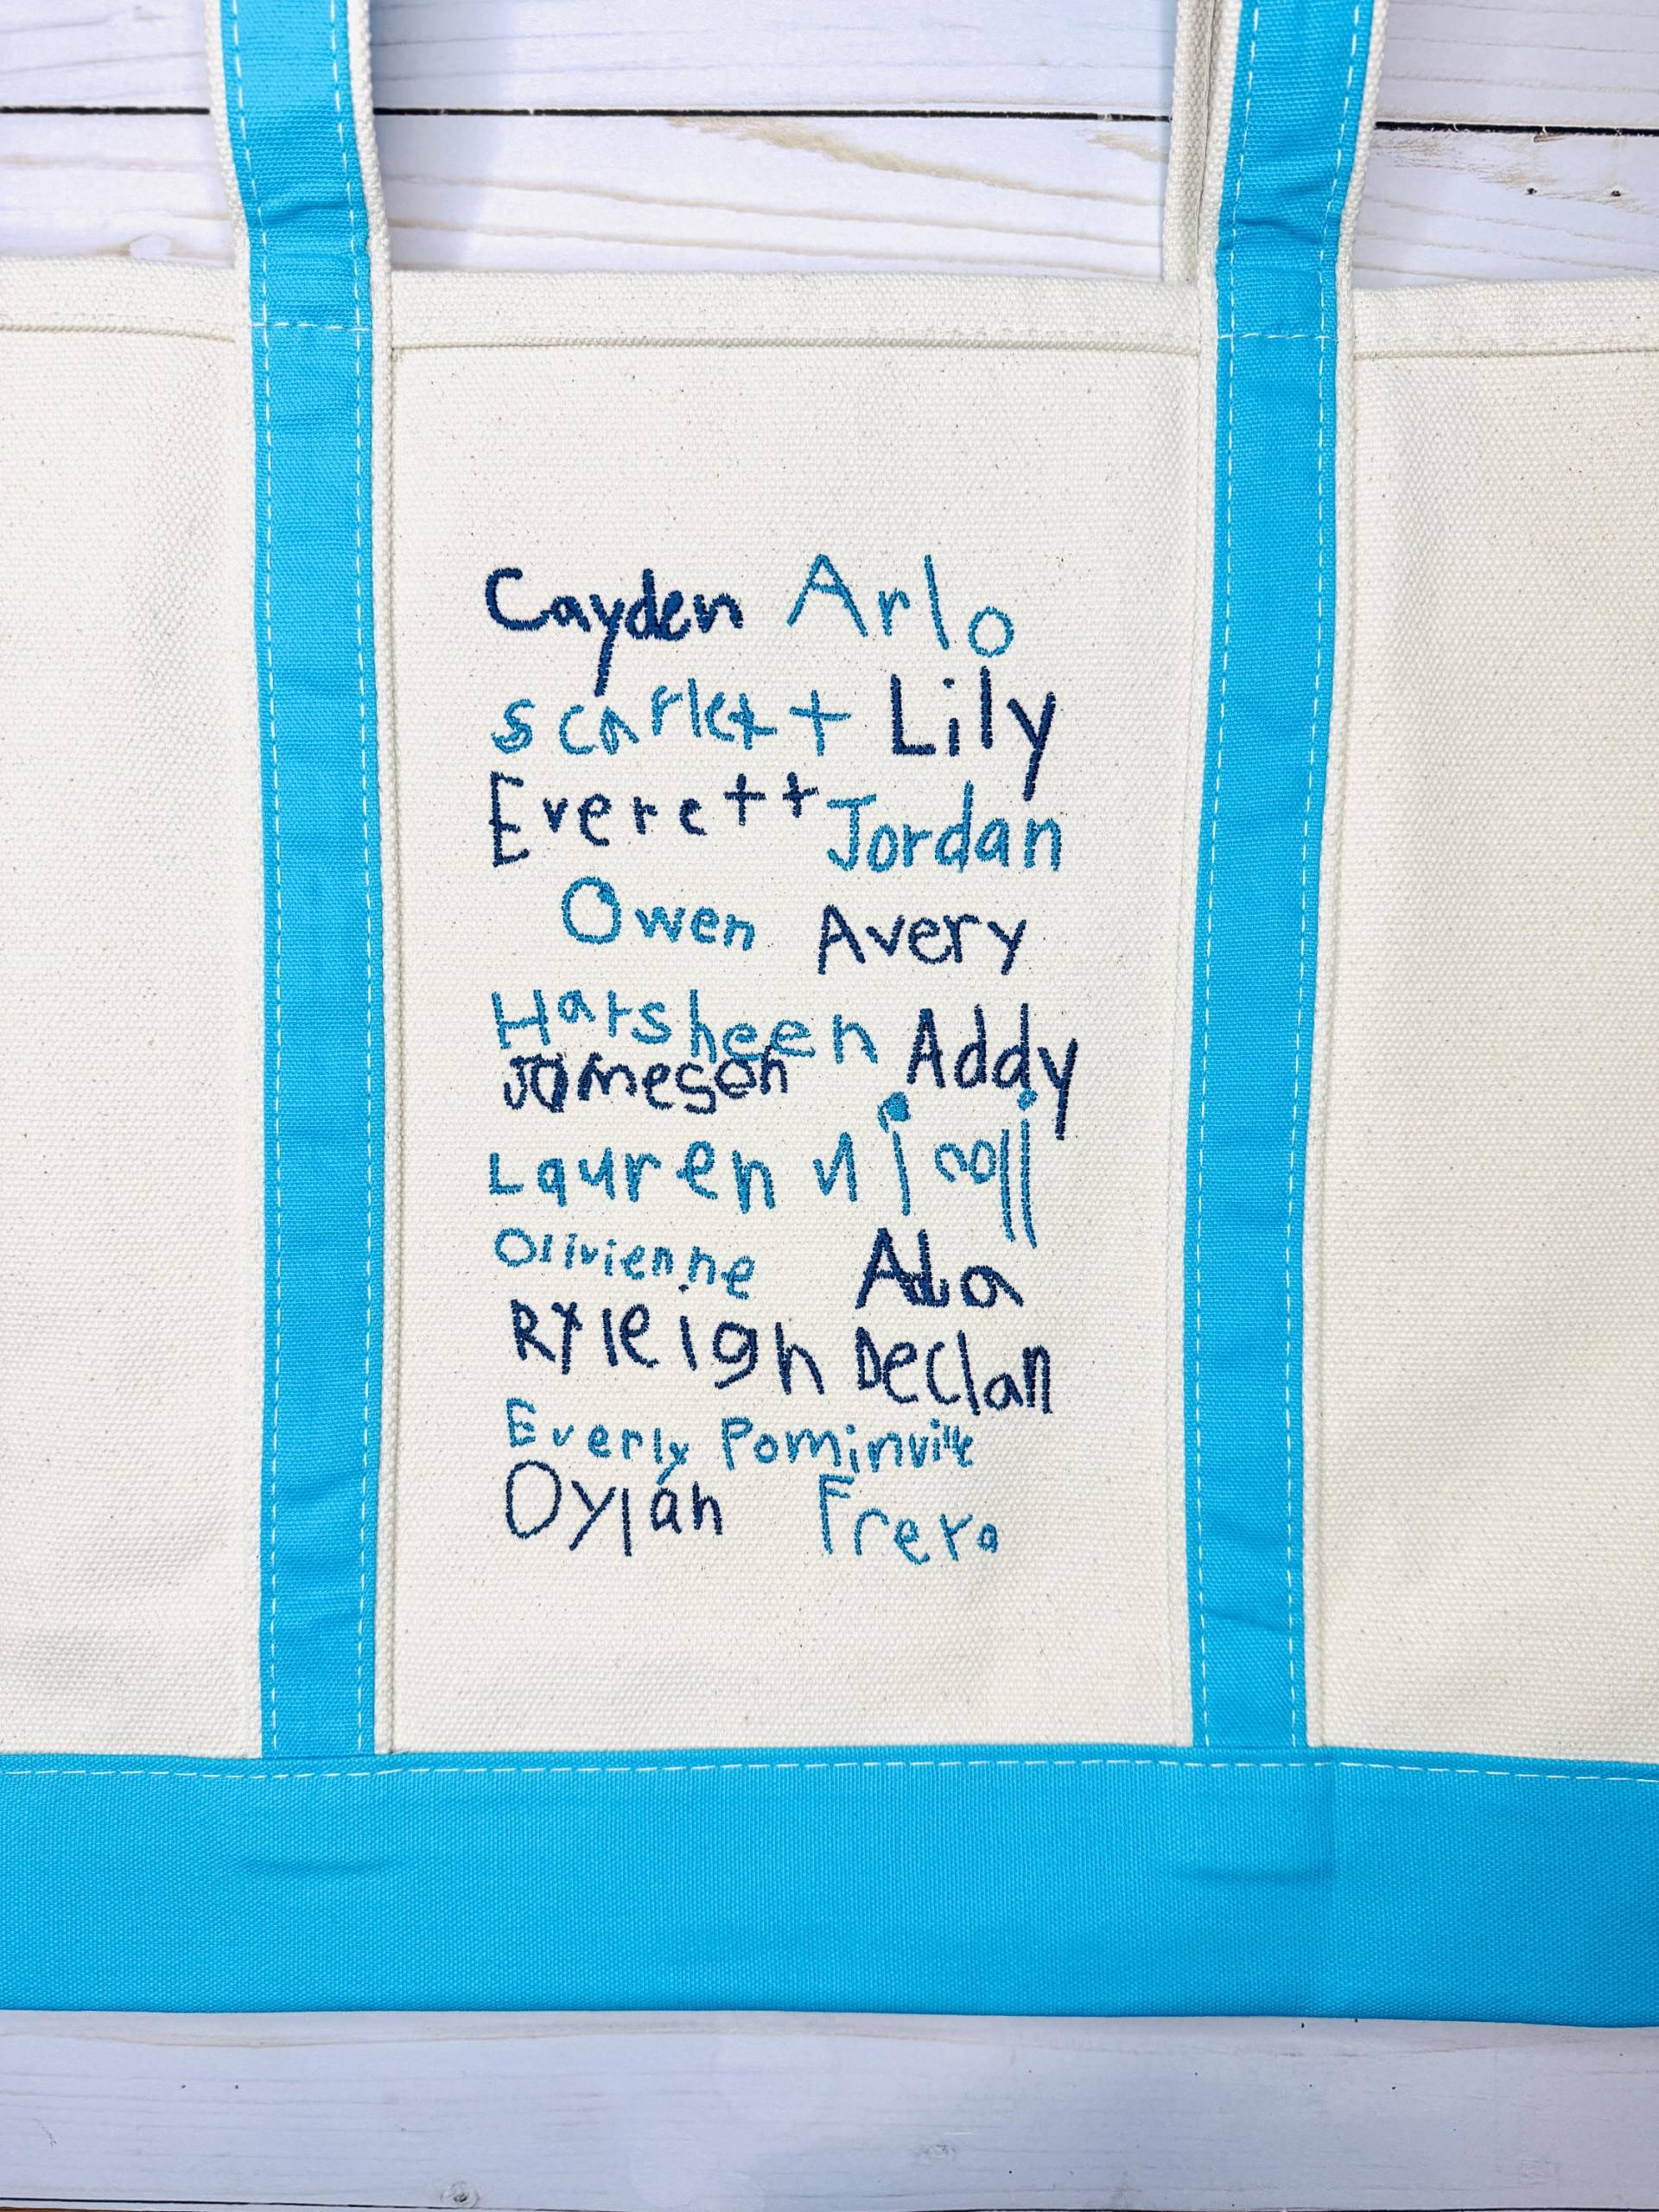 Cayden Arlo
Scarlett Lily
Everett Jordan
Owen Avery
Harsheen Addy
Jameson
Lauren
Olivienne Ada
Ryleigh Declan
Everly Pominville
Dylan Freya